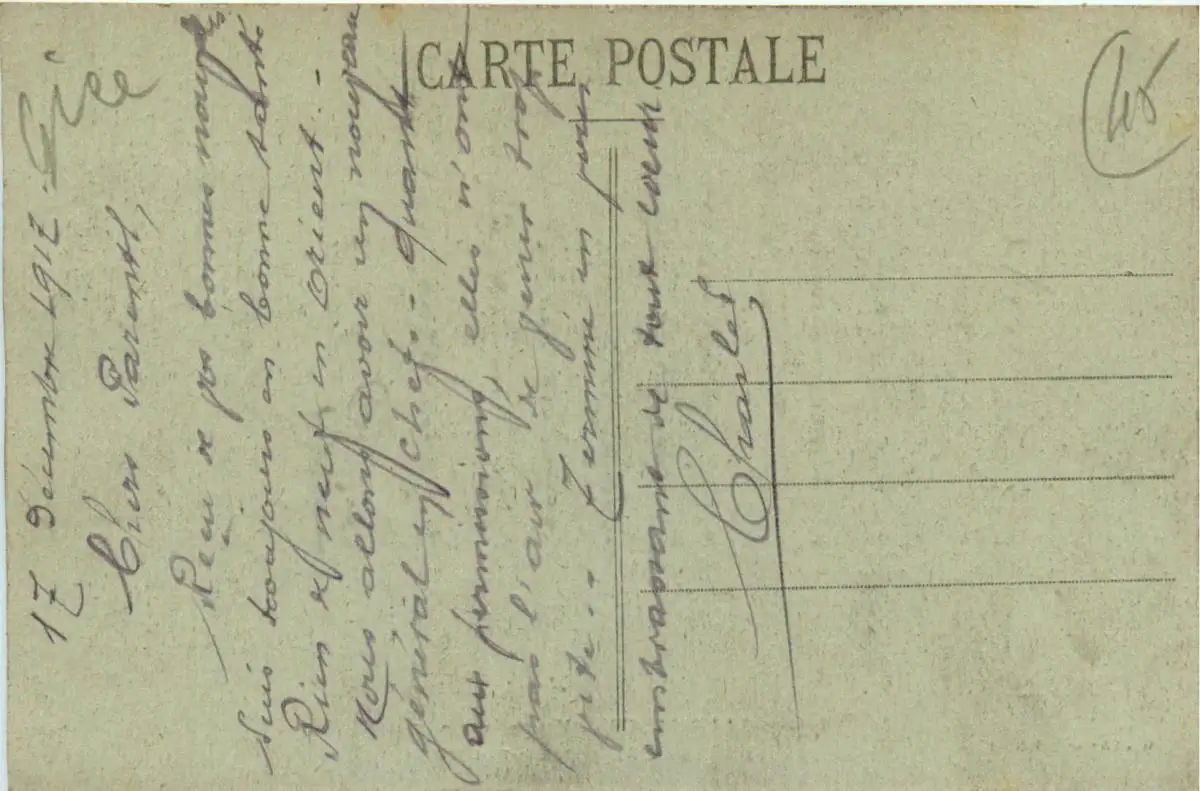 CARTE POSTALE
17 Décembre 1917.
Chers Parents,
Reçu de vos bonnes nouvelles
suis toujours en bonne santé
Rien de neuf en Orient. -
Nous allons avoir un nouveau
général en chef. - Quant
aux permissions, elles n'ont
pas l'air de venir trop
vite. - Termine en vous
embrassant de tout coeur
Charles